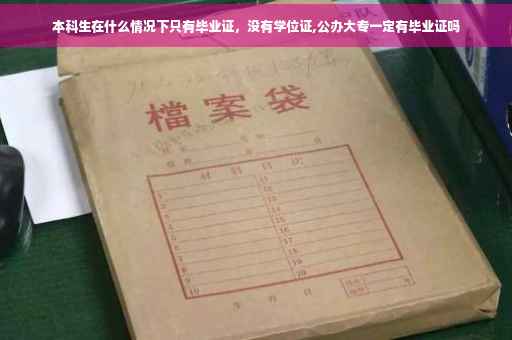 本科生在什么情况下只有毕业证，没有学位证,公办大专一定有毕业证吗
檔案袋
材料目次
1 11
2 12
3 13
4 14
5 15
6 16
7 17
8 18
9 19
10 20
年 月 日